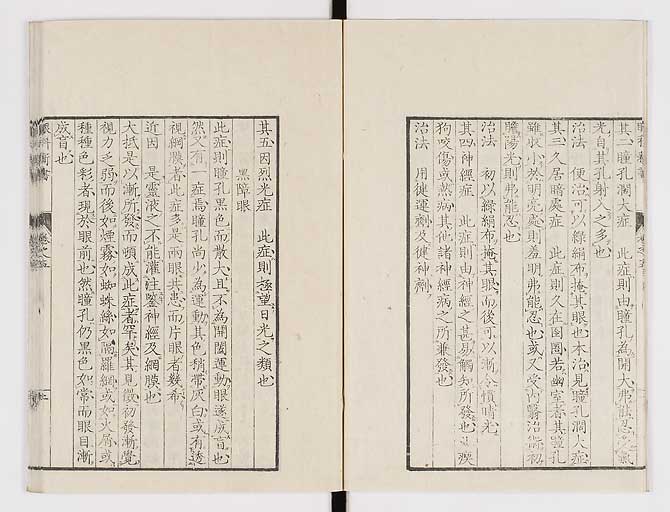 其二瞳孔濶大症　此症則由瞳孔爲開大弗能忍之氣
光自其孔射入之多也
治法　便治可以綠絹布掩其眼也本治見瞳孔濶大症
其三久居暗處症　此症則久在囹圄若幽室者其瞳孔
雖收小於明亮處則羞明弗能忍也或又受內醫治術初
瞻陽光則弗能忍也
治法　初以綠絹布掩其眼而後可以漸令慣晴光
其四神經症　此症則由神經之甚易觸知所發也
狗咬傷或熱病其他諸神經病之所兼發也
治法　用健運劑及健神劑
其五因烈光症　此症則極望日光之類也
黑障眼
此症則瞳孔黑色而散大且不爲開闔運動眼遂成盲也
然又有一症焉瞳孔尚少爲運動其色稍帶灰白或有透
視網膜者此症多是兩眼共患而片眼者幾希
近因　是靈液之不能灌注察神經及網膜也
大抵是以漸所發而頓成此症者罕矣其見徵初發漸覺
視力乏弱而後如煙霧如蜘蛛絲如羅網或如火屑或
種種色彩者現於眼前也然瞳孔仍黑色如常而眼目漸
成盲也